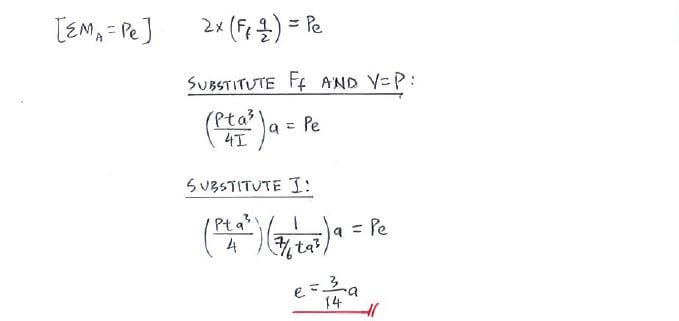 [ΣM_A = Pe] 2 × (F_f a/2) = Pe
SUBSTITUTE F_f AND V=P:
(Pta³/4I) a = Pe
SUBSTITUTE I:
(Pta³/4)(1/(7/6 ta³)) a = Pe
e = 3/14 a